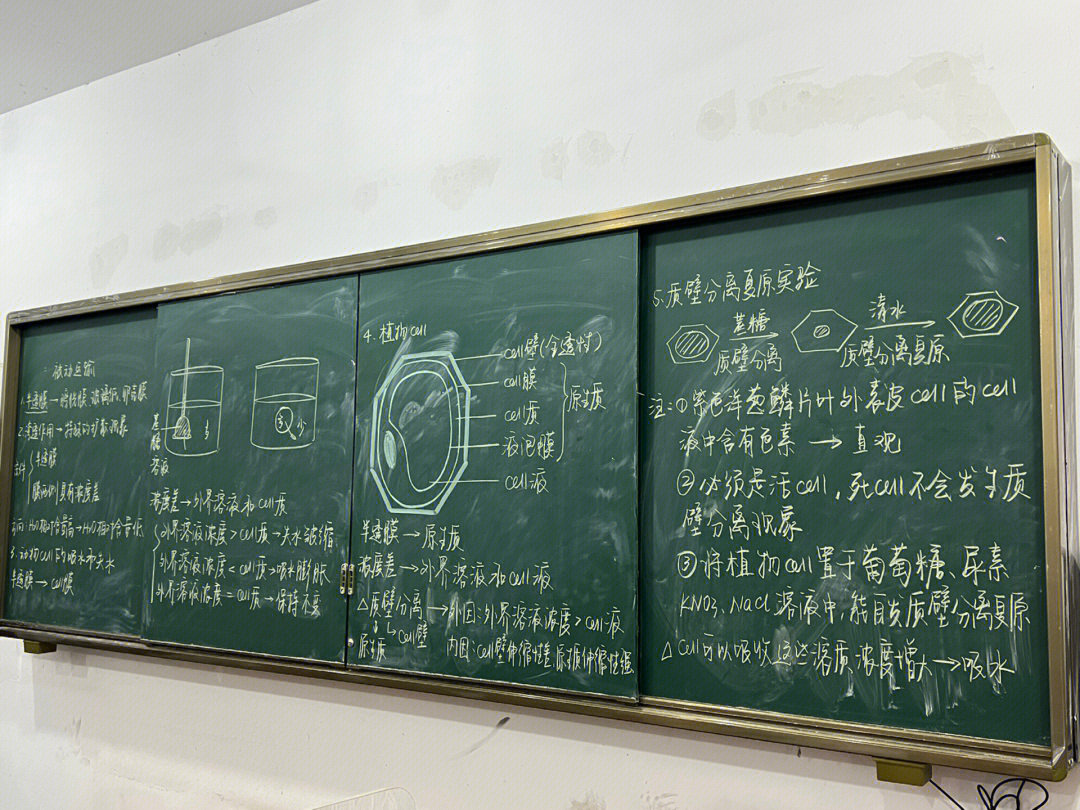 一被动运输
1.半透膜→将细胞膜 玻璃纸 卵壳膜
2.渗透作用→特殊的扩散现象
条件 半透膜
膜两侧具有浓度差
方向:H₂O相对含量高→H₂O相对含量低
3.动物cell的吸水和失水
半透膜→cell膜
蔗糖溶液
多 少
浓度差→外界溶液和cell质
外界溶液浓度>cell质→失水皱缩
外界溶液浓度<cell质→吸水膨胀
外界溶液浓度=cell质→保持不变
4.植物cell
cell壁(全透性)
cell膜
cell质
液泡膜
原生质
cell液
半透膜→原生质
浓度差→外界溶液和cell液
△质壁分离→外因:外界溶液浓度>cell液
原生质 cell壁 内因:cell壁伸缩性差 原生质伸缩性强
5.质壁分离复原实验
蔗糖
质壁分离
清水
质壁分离复原
注:①紫色洋葱鳞片叶外表皮cell的cell
液中含有色素→直观
②必须是活cell,死cell不会发生质
壁分离现象
③将植物cell置于葡萄糖、尿素
KNO₃、NaCl溶液中,能自发质壁分离复原
△cell可以吸收这些溶质浓度增大→吸水